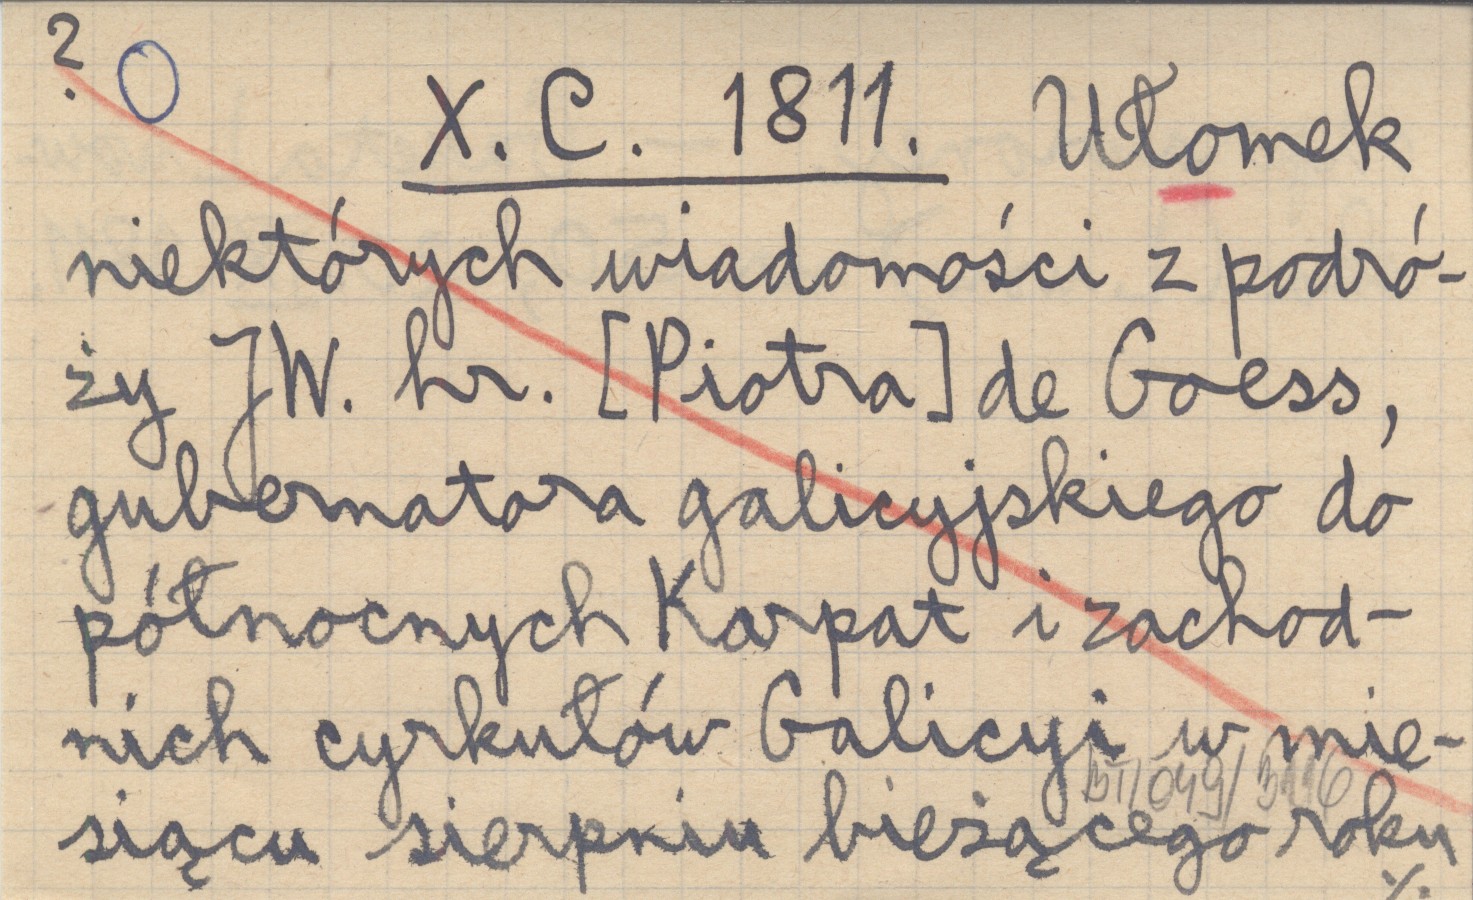 ? O
X. C. 1811. Ułomek
niektórych wiadomości z podró-
ży JW. hr. [Piotra] de Goess,
gubernatora galicyjskiego do
północnych Karpat i zachod-
nich cyrkułów Galicyi w mie-
siącu sierpniu bieżącego roku
./.